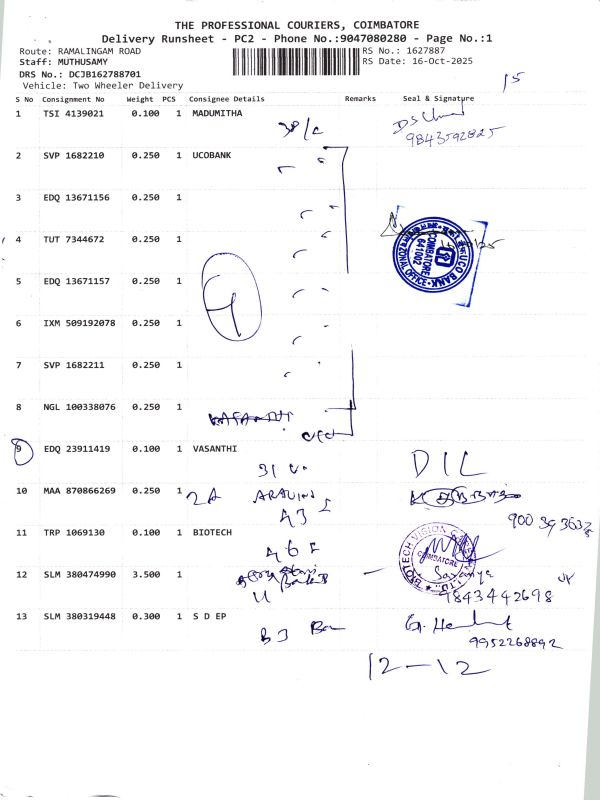 THE PROFESSIONAL COURIERS, COIMBATORE
Delivery Runsheet - PC2 - Phone No.:9047080280 - Page No.:1
Route: RAMALINGAM ROAD
RS No.: 1627887
Staff: MUTHUSAMY
RS Date: 16-Oct-2025
DRS No.: DCJB162788701
Vehicle: Two Wheeler Delivery
15
S No Consignment No Weight PCS Consignee Details Remarks Seal & Signature
1 TSI 4139021 0.100 1 MADUMITHA
9843592825
2 SVP 1682210 0.250 1 UCOBANK
3 EDQ 13671156 0.250 1
4 TUT 7344672 0.250 1
UCO BANK
COIMBATORE
641002
ZONAL OFFICE
5 EDQ 13671157 0.250 1
6 IXM 509192078 0.250 1
7 SVP 1682211 0.250 1
8 NGL 100338076 0.250 1
9 EDQ 23911419 0.100 1 VASANTHI
DIL
10 MAA 870866269 0.250 1 2A
11 TRP 1069130 0.100 1 BIOTECH
BIOTECH VISION CARE
COIMBATORE
12 SLM 380474990 3.500 1
9843442698
13 SLM 380319448 0.300 1 S D EP
9952268892
12-12